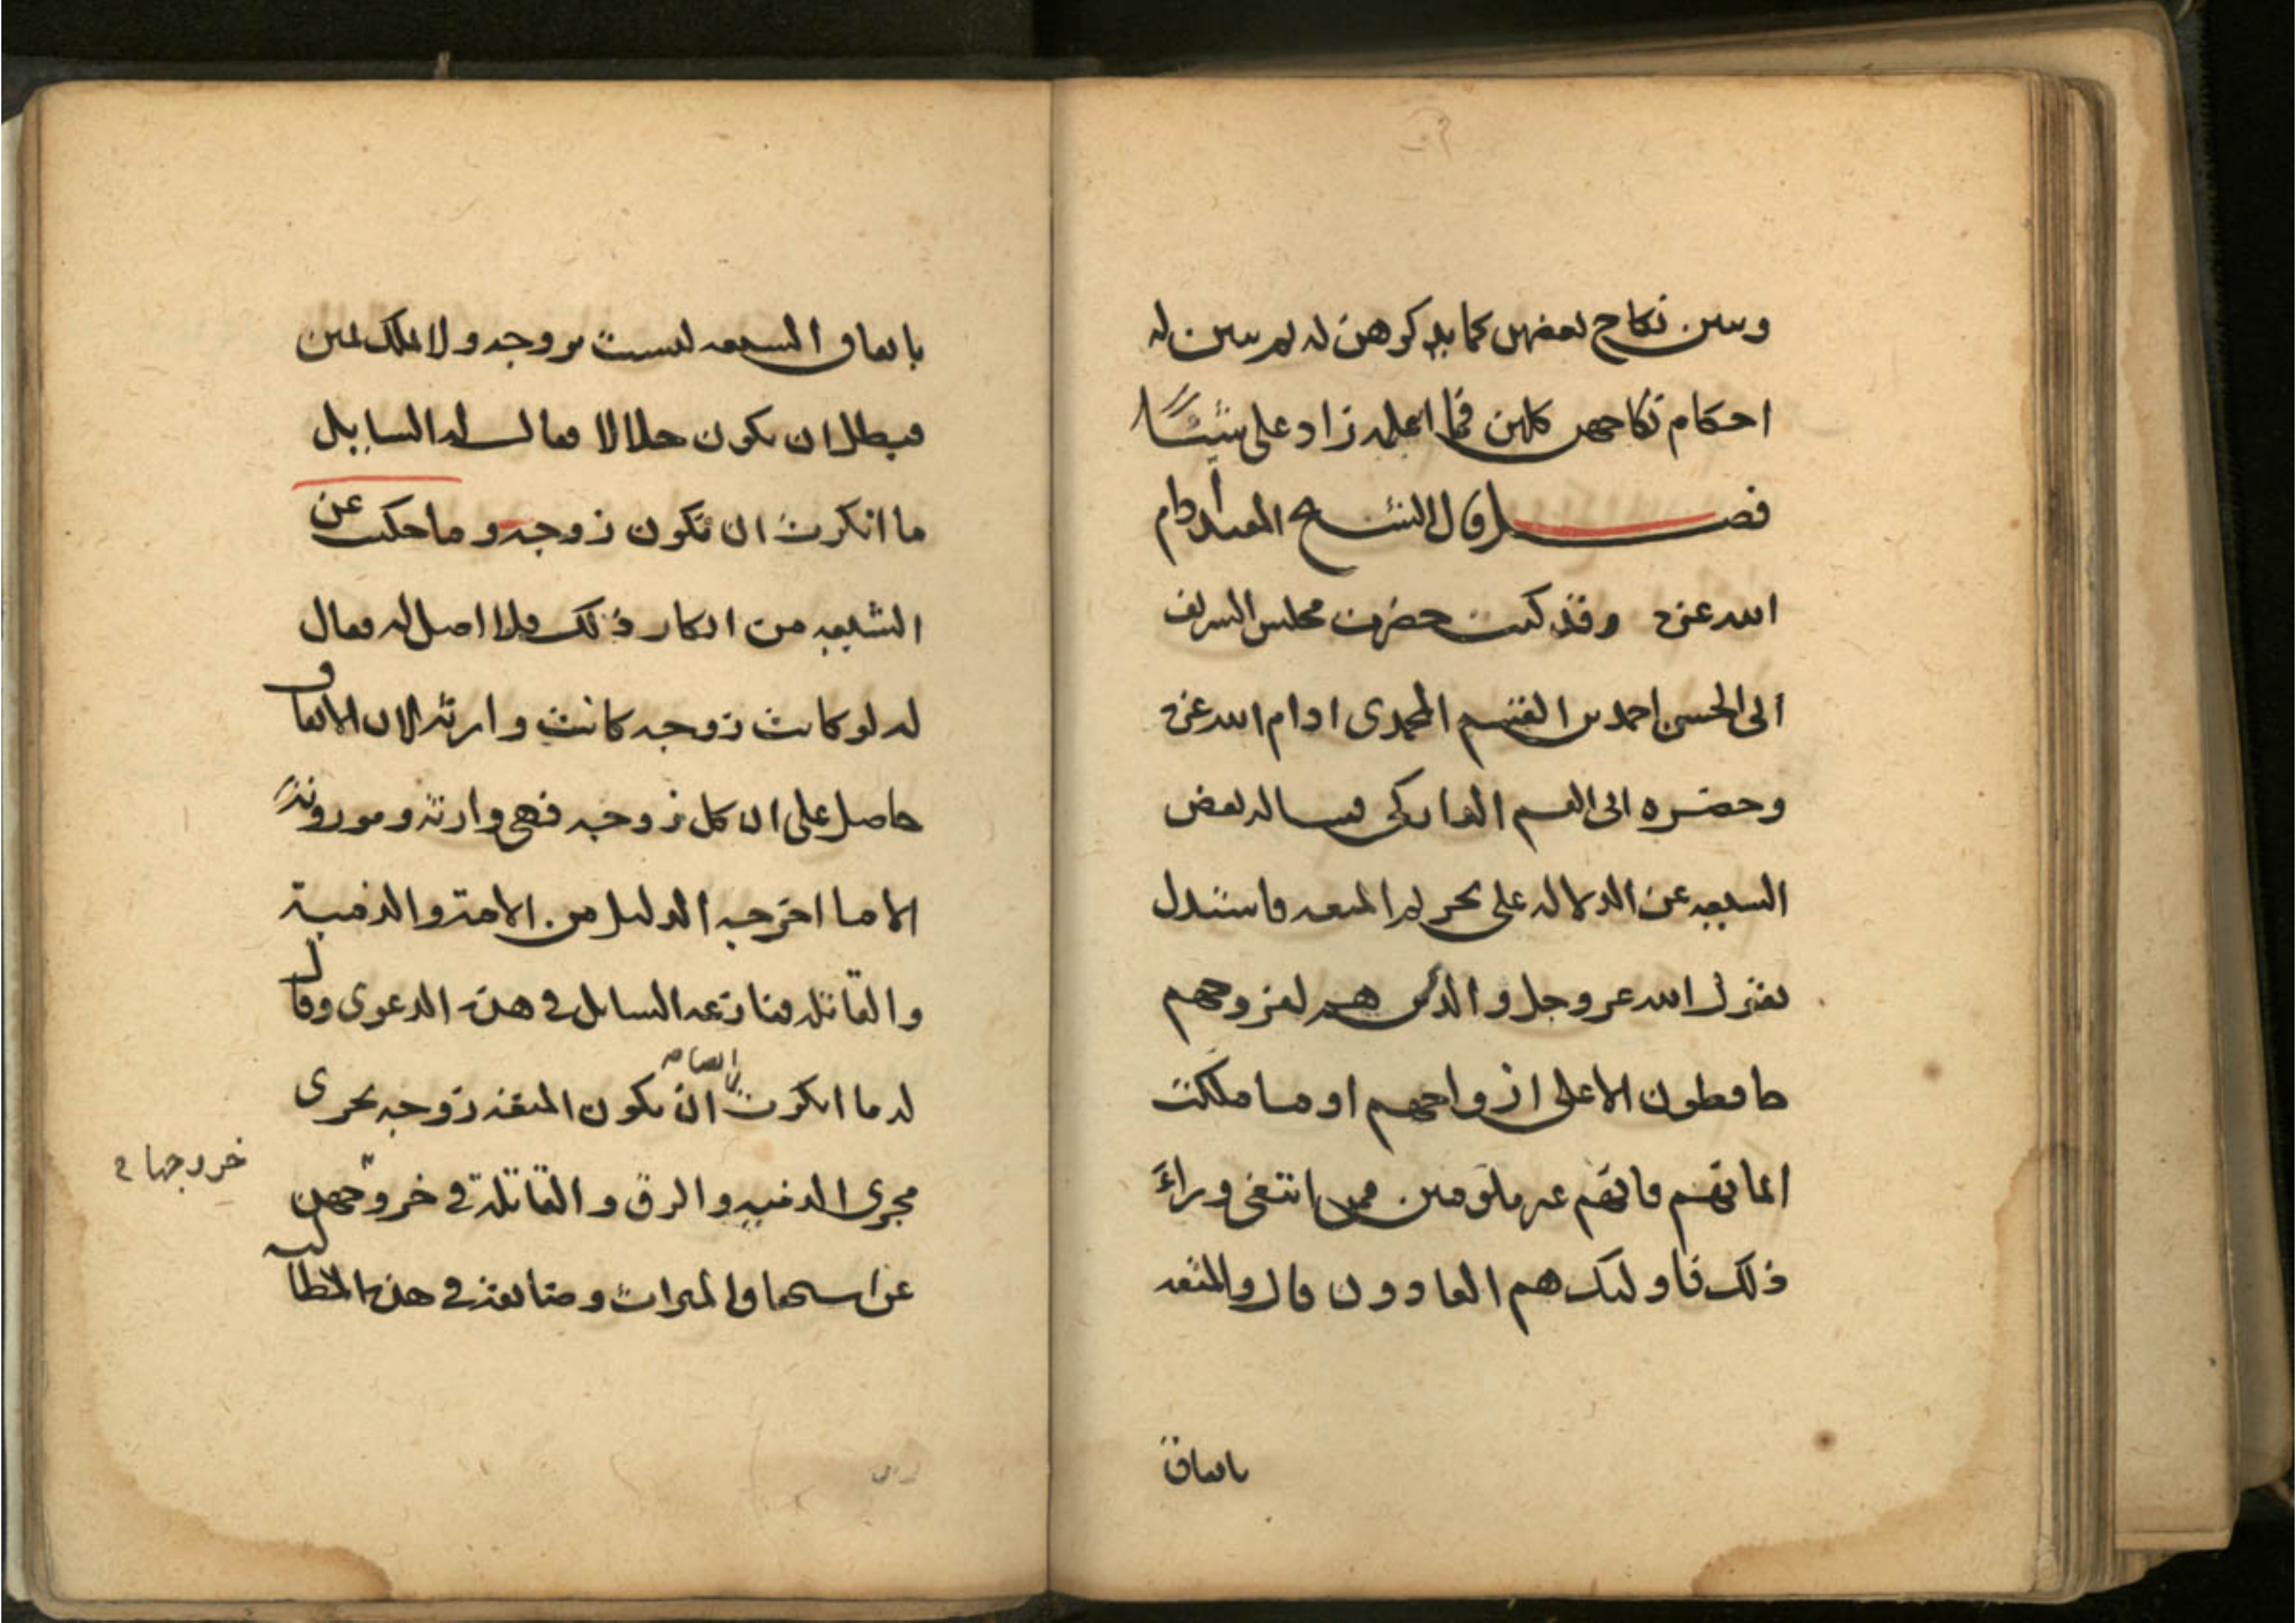 وبين نكاح بعضهن كما يذكر هن له لم يبين له
احكام نكاحهن كلهن فما اعلمه زاد على شيئًا
فصل قال الشيخ المفيد ادام
الله عزه وقد كنت حضرت مجلس الشريف
ابى الحسن احمد بن القسم المحمدى ادام الله عزه
وحضره ابى القسم الداركى فساله بعض
الشيعه عن الدلاله على تحريم المتعه فاستدل
بقول الله عز وجل والذين هم لفروجهم
حافظون الا على ازواجهم او ما ملكت
ايمانهم فانهم غير ملومين فمن ابتغى وراءَ
ذلك فاوليك هم العادون قال والمتعه
باتفاق
باتفاق الشيعه ليست بزوجه ولا ملك يمين
فبطل ان يكون حلالا فقال له السايل
ما انكرت ان تكون زوجه وما حكيت عن
الشيعه من انكار ذلك فلا اصل له فقال
له لو كانت زوجه كانت وارثه لان الاتفاق
حاصل على ان كل زوجه فهى وارثه وموروثةً
الا ما اخرجه الدليل من الامة والذمية
والقاتله فنازعه السايل في هذه الدعوى وقال
له ما انكرت ان تكون المتعه زوجه تجرى
ايضا
مجرى الذميه والرق والقاتلة في خروجهن
خروجها في
عن استحقاق الميراث وضايقه في هذه المطالبه